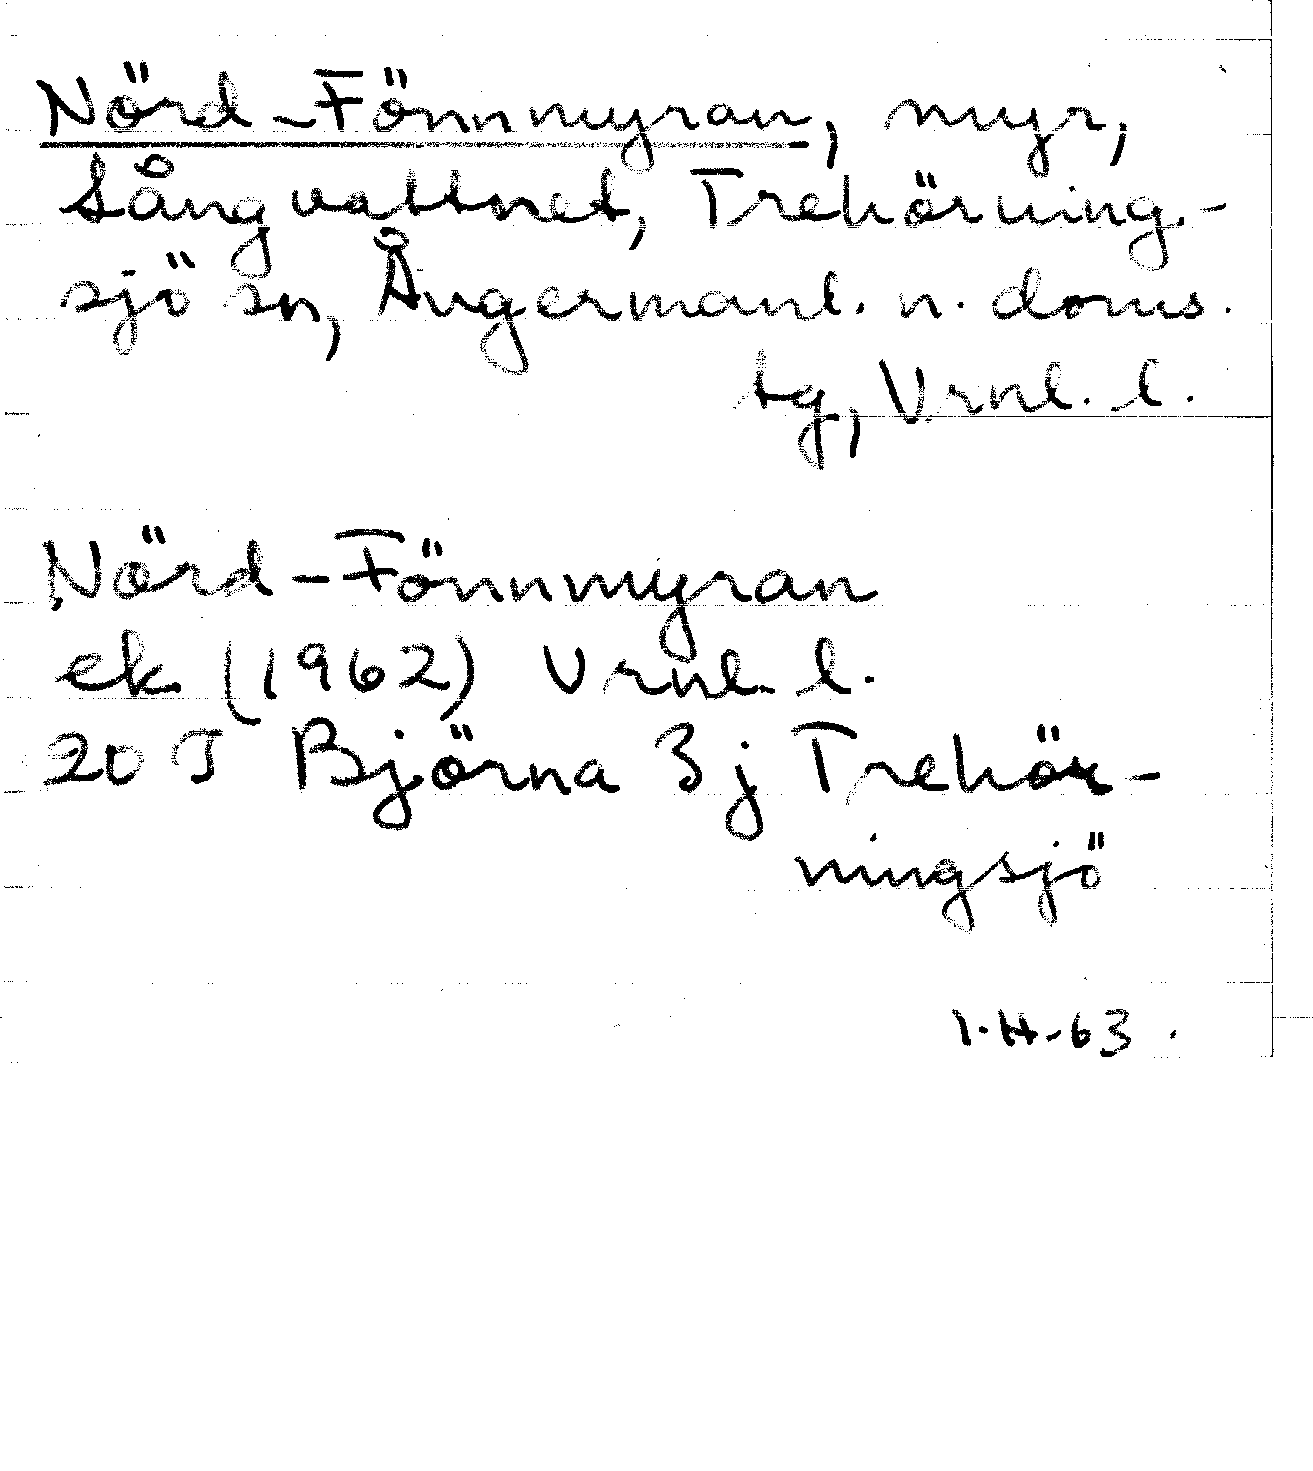 Nörd-Fönnmyran, myr,
Sångvattnet, Trehörning-
sjö sn, Ångermanl. n. doms.
tg, Vrnl. l.
Nörd-Fönnmyran
ek (1962) Vrnl. l.
20 J Björna 3j Trehör-
ningsjö
1.H.63.